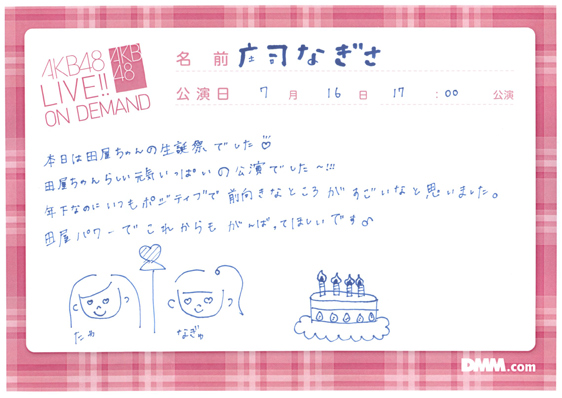 AKB48
LIVE!!
ON DEMAND
AKB
48
名前 庄司なぎさ
公演日 7月16日 17:00 公演
本日は田屋ちゃんの生誕祭でした♡
田屋ちゃんらしい元気いっぱいの公演でした〜!!!
年下なのにいつもポジティブで前向きなところがすごいなと思いました。
田屋パワーでこれからもがんばってほしいです♂
たや
なぎゅ
DMM.com